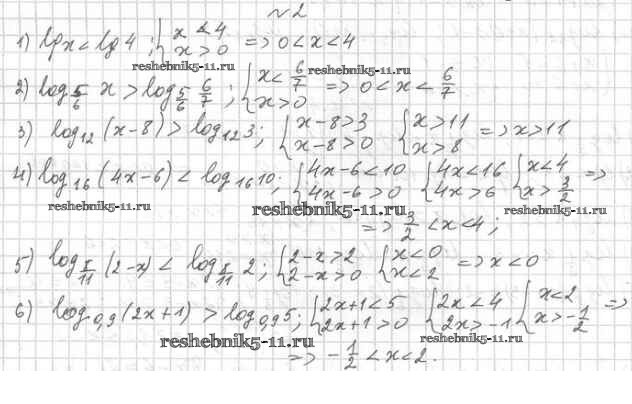 №2
1) lg x < lg 4; { x < 4 x > 0 => 0 < x < 4
reshebnik5-11.ru reshebnik5-11.ru
2) log 5/6 x > log 5/6 6/7; { x < 6/7 x > 0 => 0 < x < 6/7
3) log₁₂ (x-8) > log₁₂ 3; { x-8 > 3 x-8 > 0 { x > 11 x > 8 => x > 11
4) log₁₆ (4x-6) < log₁₆ 10; { 4x-6 < 10 4x-6 > 0 { 4x < 16 4x > 6 { x < 4 x > 3/2 =>
reshebnik5-11.ru reshebnik5-11.ru reshebnik5-11.ru
=> 3/2 < x < 4;
5) log 5/11 (2-x) < log 5/11 2; { 2-x > 2 2-x > 0 { x < 0 x < 2 => x < 0
6) log₀,₉ (2x+1) > log₀,₉ 5; { 2x+1 < 5 2x+1 > 0 { 2x < 4 2x > -1 { x < 2 x > -1/2 =>
reshebnik5-11.ru
=> -1/2 < x < 2.